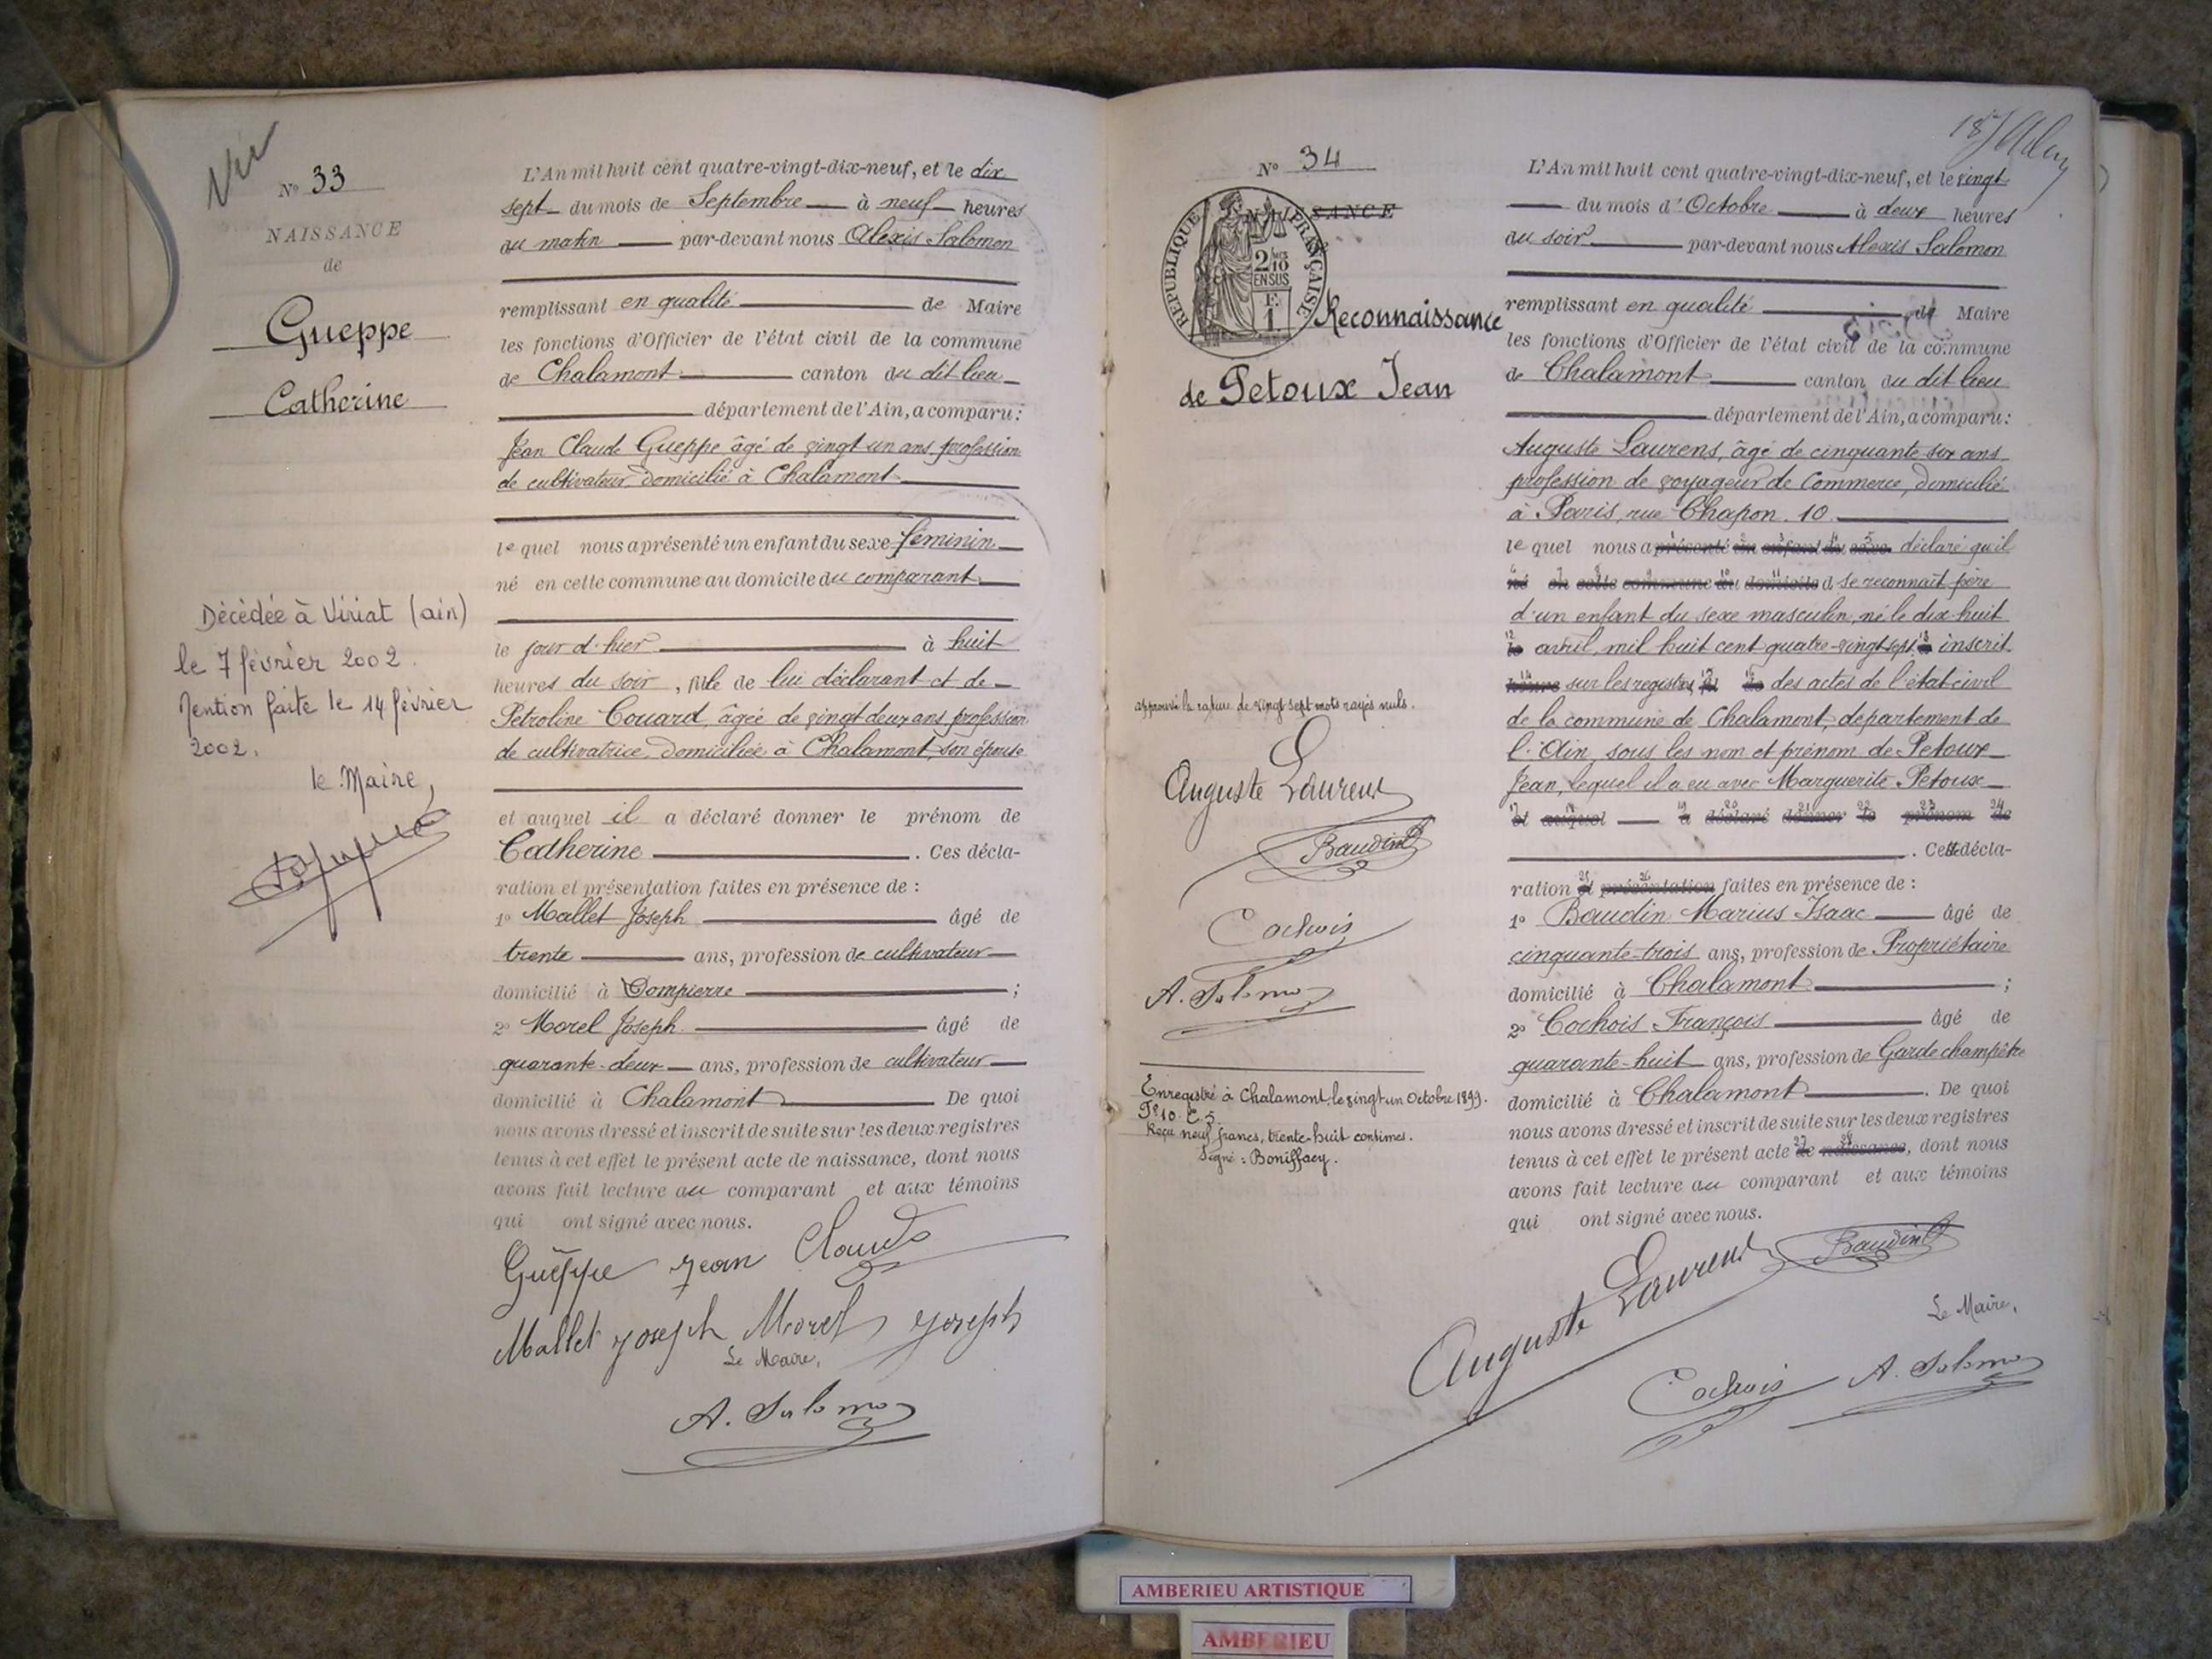 Nº 33
NAISSANCE
de
Gueppe
Catherine
Décédée à Viriat (ain)
le 7 février 2002.
Mention faite le 14 février
2002.
le Maire,
L'An mil huit cent quatre-vingt-dix-neuf, et le dix
sept du mois de Septembre à neuf heures
du matin par-devant nous Alexis Salomon
remplissant en qualité de Maire
les fonctions d'Officier de l'état civil de la commune
de Chalamont canton du dit lieu
département de l'Ain, a comparu:
Jean Claude Gueppe âgé de vingt un ans profession
de cultivateur, domicilié à Chalamont
le quel nous a présenté un enfant du sexe féminin
né en cette commune au domicile du comparant
le jour d'hier à huit
heures du soir, fille de lui déclarant et de
Petroline Couard, âgée de vingt deux ans profession
de cultivatrice, domiciliée à Chalamont, son épouse
et auquel il a déclaré donner le prénom de
Catherine. Ces décla-
ration et présentation faites en présence de :
1º Mallet Joseph âgé de
trente ans, profession de cultivateur
domicilié à Dompierre ;
2º Morel Joseph âgé de
quarante-deux ans, profession de cultivateur
domicilié à Chalamont De quoi
nous avons dressé et inscrit de suite sur les deux registres
tenus à cet effet le présent acte de naissance, dont nous
avons fait lecture au comparant et aux témoins
qui ont signé avec nous.
Gueppe jean Claude
Mallet joseph Morel joseph
Le Maire,
A. Salomon
Nº 34
NAISSANCE
RÉPUBLIQUE FRANÇAISE
2/10
EN SUS
F.
1
Reconnaissance
de Petoux Jean
approuvé la rature de vingt sept mots rayés nuls.
Auguste Laurens
Baudin
Cochois
A. Salomon
Enregistré à Chalamont, le vingt un Octobre 1899.
Fº 10. C. 5
Reçu neuf francs, trente-huit centimes.
Signé : Boniffacy.
L'An mil huit cent quatre-vingt-dix-neuf, et le vingt
du mois d'Octobre à deux heures
du soir par-devant nous Alexis Salomon
remplissant en qualité de Maire
les fonctions d'Officier de l'état civil de la commune
de Chalamont canton du dit lieu
département de l'Ain, a comparu:
Auguste Laurens, âgé de cinquante six ans
profession de voyageur de Commerce, domicilié
à Paris, rue Chapon. 10.
le quel nous a présenté un enfant du sexe déclaré qu'il
né en cette commune au domicile d se reconnaît père
d'un enfant du sexe masculin, né le dix-huit
le avril, mil huit cent quatre-vingt sept à inscrit
heures sur les registres des actes de l'état civil
de la commune de Chalamont, département de
l'Ain, sous les nom et prénom de Petoux
Jean, lequel il a eu avec Marguerite Petoux
et auquel a déclaré donner le prénom de
. Cette décla-
ration et présentation faites en présence de :
1º Baudin Marius Isaac âgé de
cinquante-trois ans, profession de Propriétaire
domicilié à Chalamont ;
2º Cochois François âgé de
quarante-huit ans, profession de Garde champêtre
domicilié à Chalamont. De quoi
nous avons dressé et inscrit de suite sur les deux registres
tenus à cet effet le présent acte de naissance, dont nous
avons fait lecture au comparant et aux témoins
qui ont signé avec nous.
Auguste Laurens Baudin
Le Maire,
Cochois A. Salomon
AMBERIEU ARTISTIQUE
AMBERIEU